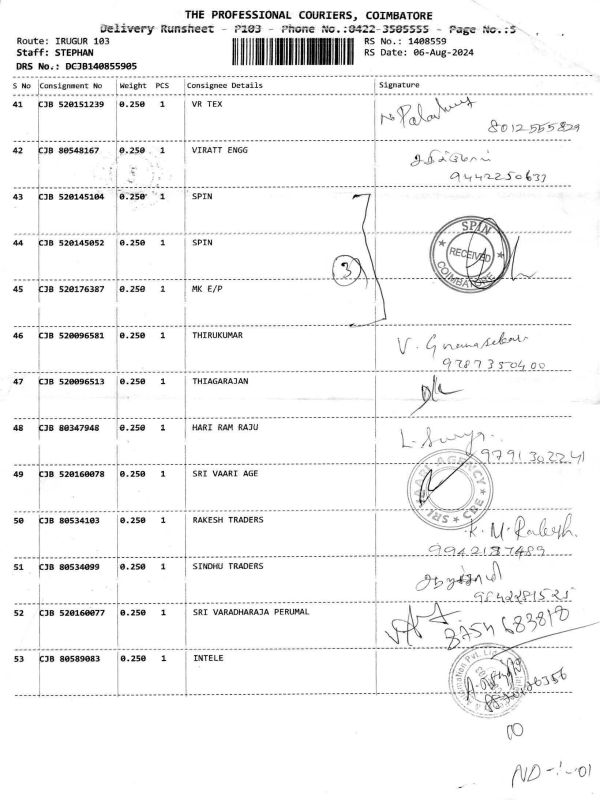 THE PROFESSIONAL COURIERS, COIMBATORE
Delivery Runsheet - P103 - Phone No.:0422-3505555 - Page No.:5
Route: IRUGUR 103
Staff: STEPHAN
DRS No.: DCJB140855905
RS No.: 1408559
RS Date: 06-Aug-2024
S No Consignment No Weight PCS Consignee Details Signature
41 CJB 520151239 0.250 1 VR TEX
8012555829
42 CJB 80548167 0.250 1 VIRATT ENGG
9442250637
43 CJB 520145104 0.250 1 SPIN
44 CJB 520145052 0.250 1 SPIN
SPIN
RECEIVED
COIMBATORE
3
45 CJB 520176387 0.250 1 MK E/P
46 CJB 520096581 0.250 1 THIRUKUMAR
V. Gnanasekar
9787350400
47 CJB 520096513 0.250 1 THIAGARAJAN
48 CJB 80347948 0.250 1 HARI RAM RAJU
L. Surya
9791302241
49 CJB 520160078 0.250 1 SRI VAARI AGE
SRI VAARI AGENCY CBE
50 CJB 80534103 0.250 1 RAKESH TRADERS
9942137489
51 CJB 80534099 0.250 1 SINDHU TRADERS
52 CJB 520160077 0.250 1 SRI VARADHARAJA PERUMAL
8754683818
53 CJB 80589083 0.250 1 INTELE